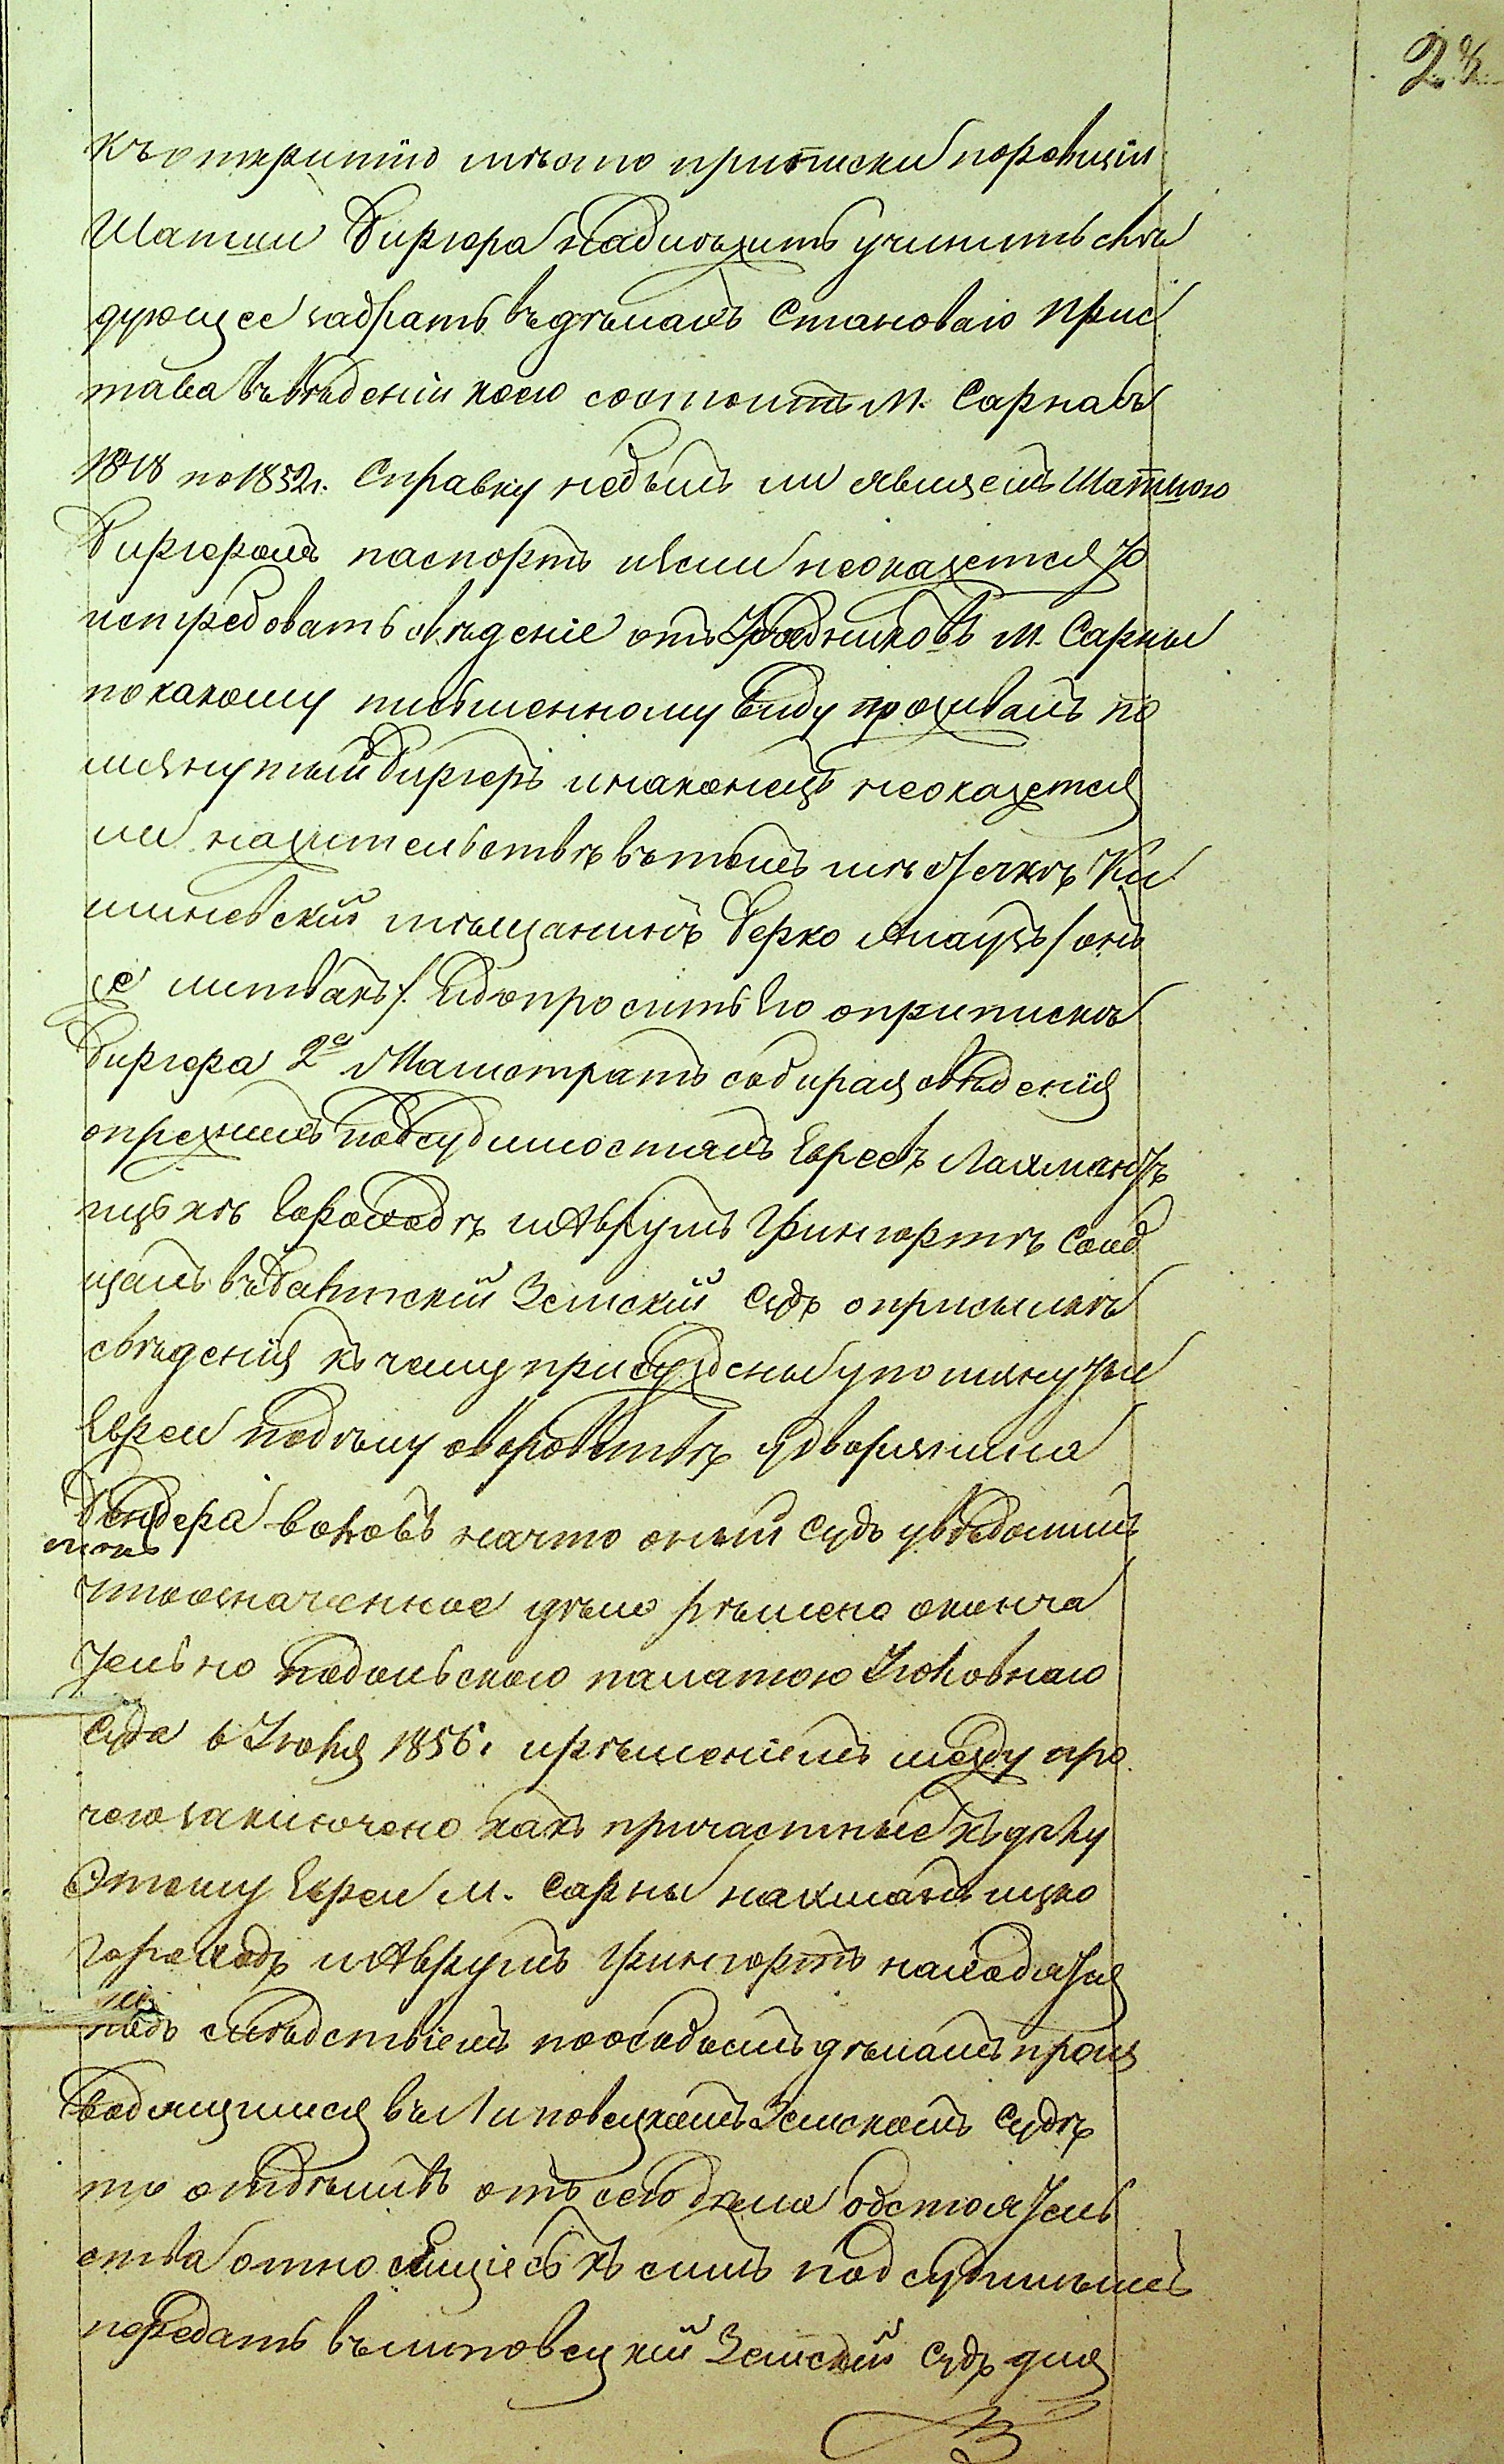 къ открытию мѣсто приписки порожній
Шатии Биргера надлежитъ учинить слѣ
дующее забрать въ дѣлахъ Становаго Прис
тава въ вѣденіи коего состоитъ м. Сарна съ
1848 по 1852 г. Справку небылъ ли явленъ Шатиою
Биргеромъ паспортъ и если неокажется то
истребовать свѣденіе отъ Урядниковъ м. Сарны
по какому письменному виду проживалъ по
мянутый Биргеръ и наконецъ неокажется
ли на жительствѣ въ томъ мѣстечкѣ Ки
шиневский мѣщанинъ Берко Апацъ / онъ
же литвакъ / и допросить его о припискѣ
Биргера 2е Магистратъ собирая свѣденія
о прежнихъ подсудимостяхъ Евреевъ Нахманѣ
ицькѣ Гороходѣ и Аврумѣ Грингортѣ сооб
щалъ въ Балтский Земский Судъ о присылкѣ
свѣденія къ чему присуждены упомянутые
Евреи по дѣлу о воровствѣ у дворянина
Бендера воловъ на что оный Судъ увѣдомилъ
что означенное дѣло рѣшено оконча
тельно Подольскою палатою Уголовнаго
Суда 6 Июля 1856 г. и рѣшеніемъ между про
чего заключено какъ причастные къ дѣлу
Этому Евреи м. Сарны Нахманъ ицко
Гороходъ и Аврумъ Грингортъ находятся
подъ слѣдствіемъ по особымъ дѣламъ произ
водящимся въ Липовецкомъ Земскомъ Судѣ
то отдѣливъ отъ сего дѣла обстоятель
ства относящіесь къ симъ подсудимымъ
передать въ липовецкій Земский Судъ для